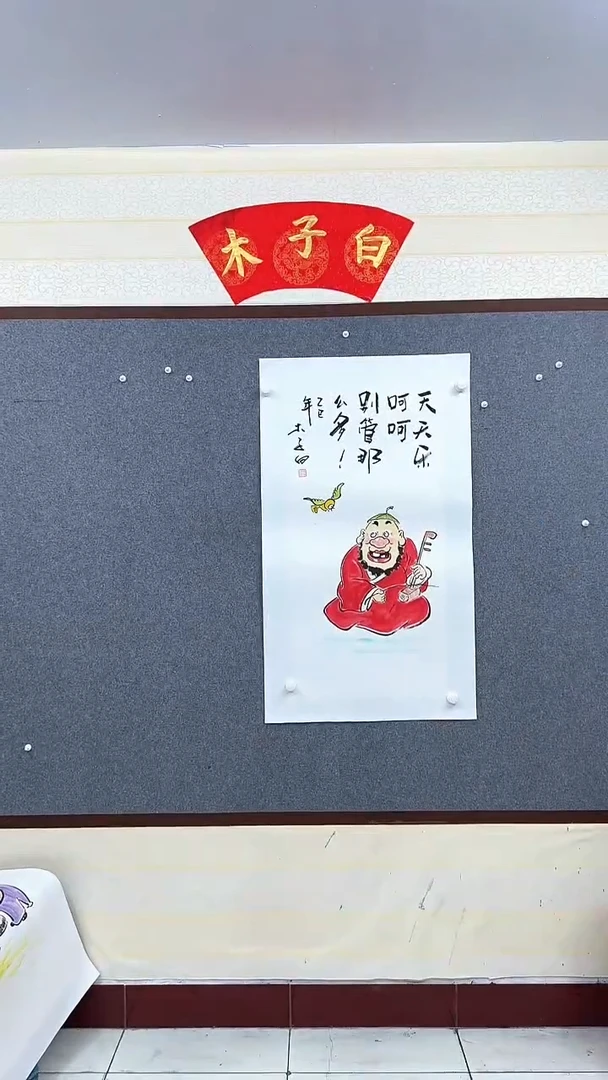 木子白
天天乐
呵呵
别管那
么多！
乙巳
年
木子白